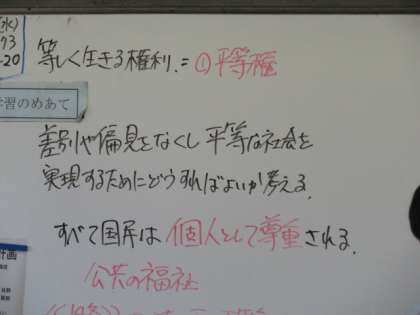 (水)
等しく生きる権利.=①平等権
学習のめあて
差別や偏見をなくし平等な社会を
実現するためにどうすればよいか考える.
すべて国民は個人として尊重される.
公共の福祉